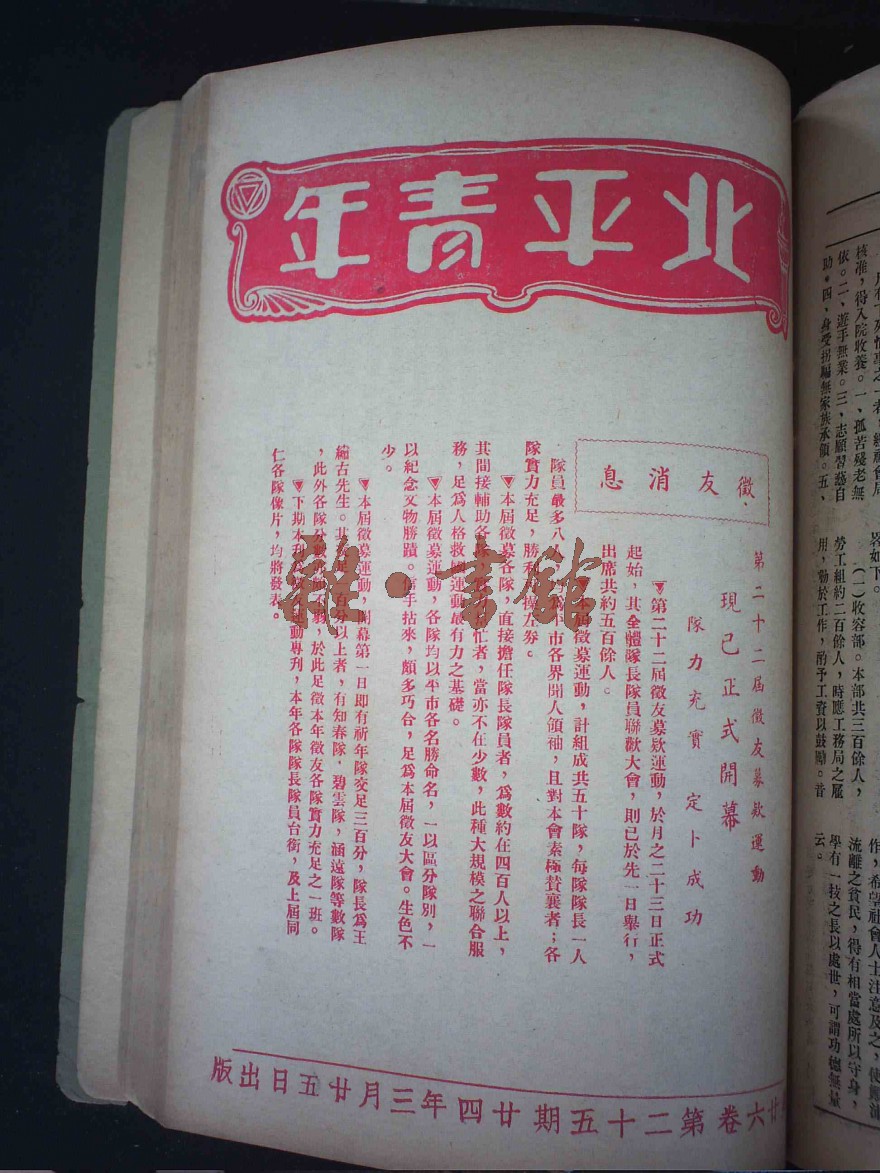 北平青年
徵友消息
第二十二屆徵友募欵運動
現已正式開幕
隊力充實 定卜成功
▼第二十二屆徵友募欵運動，於月之二十三日正式
起始，其全體隊長隊員聯歡大會，則已於先一日舉行，
出席共約五百餘人。
本屆徵募運動，計組成共五十隊，每隊隊長一人
隊員最多八人，市各界聞人領袖，且對本會素極贊襄者；各
隊實力充足，勝利操左券。
▼本屆徵募各隊，直接擔任隊長隊員者，爲數約在四百人以上，
其間接輔助各隊，忙者，當亦不在少數，此種大規模之聯合服
務，足爲人格救國運動最有力之基礎。
▼本屆徵募運動，各隊均以平市各名勝命名，一以區分隊別，一
以紀念文物勝蹟。信手拈來，頗多巧合，足爲本屆徵友大會。生色不
少。
▼本屆徵募運動，開幕第一日即有祈年隊交足三百分，隊長爲王
緬古先生。其交足一百分以上者，有知春隊，碧雲隊，涵遠隊等數隊
，此外各隊分數，於此足徵本年徵友各隊實力充足之一班。
▼下期本刋運動專刋，本年各隊隊長隊員台銜，及上屆同
仁各隊像片，均將發表。
廿六卷第二十五期廿四年三月廿五日出版
雜·書館
核准，得入院收養。一、孤苦殘老無
依。二、遊手無業。三、志願習藝自
助。四、身受拐騙無家族承領。五、
畧如下。
（一）收容部。本部共三百餘人，
勞工組約二百餘人，時應工務局之雇
用，勤於工作，酌予工資以鼓勵。昔
作，希望社會人士注意及之，使
流離之貧民，得有相當處所以守身，
學有一技之長以處世，可謂功德無量
云。